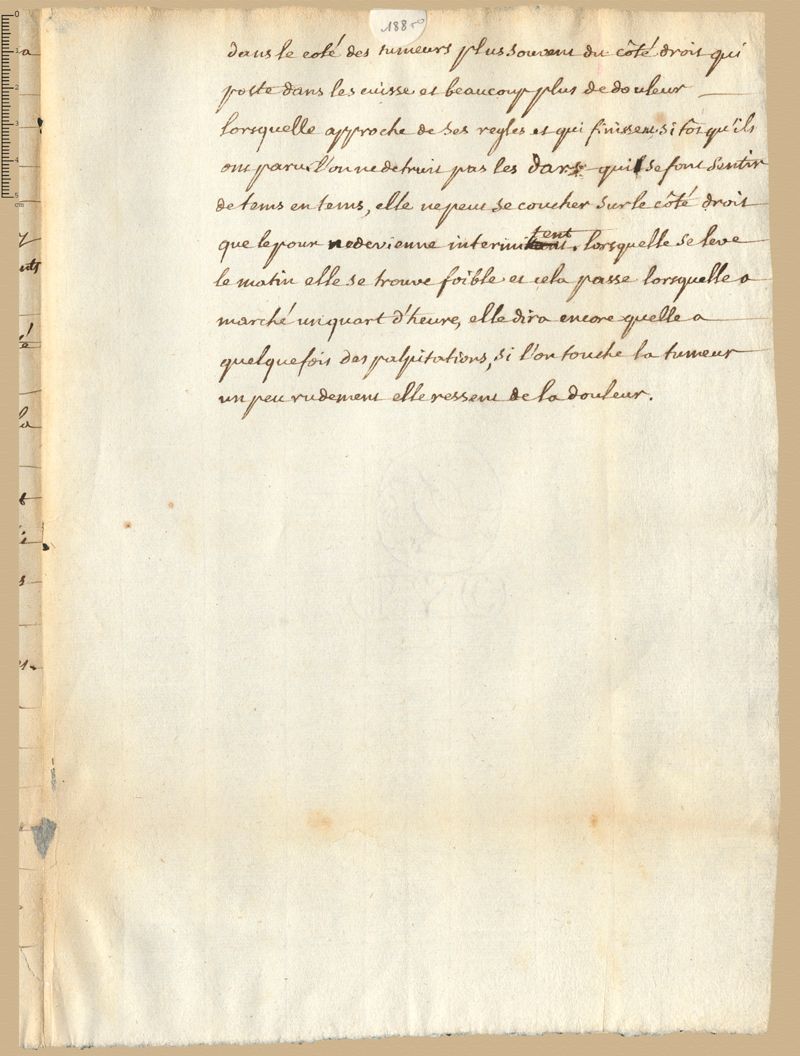 188 v°
dans le coté des tumeurs plus souvent du côté droit qui
poste dans les cuisse et beaucoup plus de douleur
lorsquelle approche de ses regles et qui finissent si tôt qu'ils
ont paru l'on ne detruit pas les dars qui se font sentir
de tems en tems, elle ne peut se coucher sur le côté droit
que le pour ne devienne intermitent. lorsquelle se leve
le matin elle se trouve foible et cela passe lorsquelle a
marché un quart d'heure, elle dira encore quelle a
quelquefois des palpitations, si l'on touche la tumeur
un peu rudement elle ressent de la douleur.